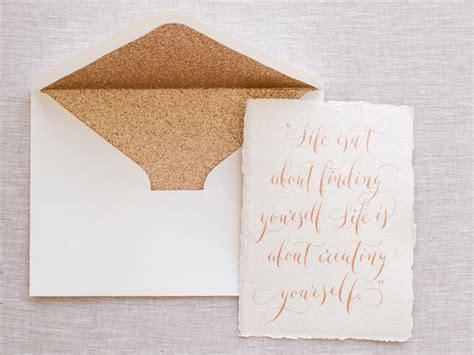 "Life isn't
about finding
yourself. Life is
about creating
yourself."